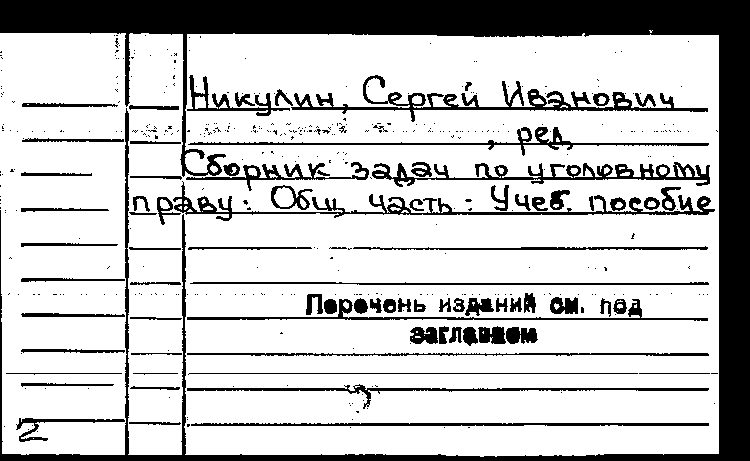 Никулин, Сергей Иванович
, ред
Сборник задач по уголовному
праву: Общ. часть: Учеб. пособие
Перечень изданий см. под
заглавием
2